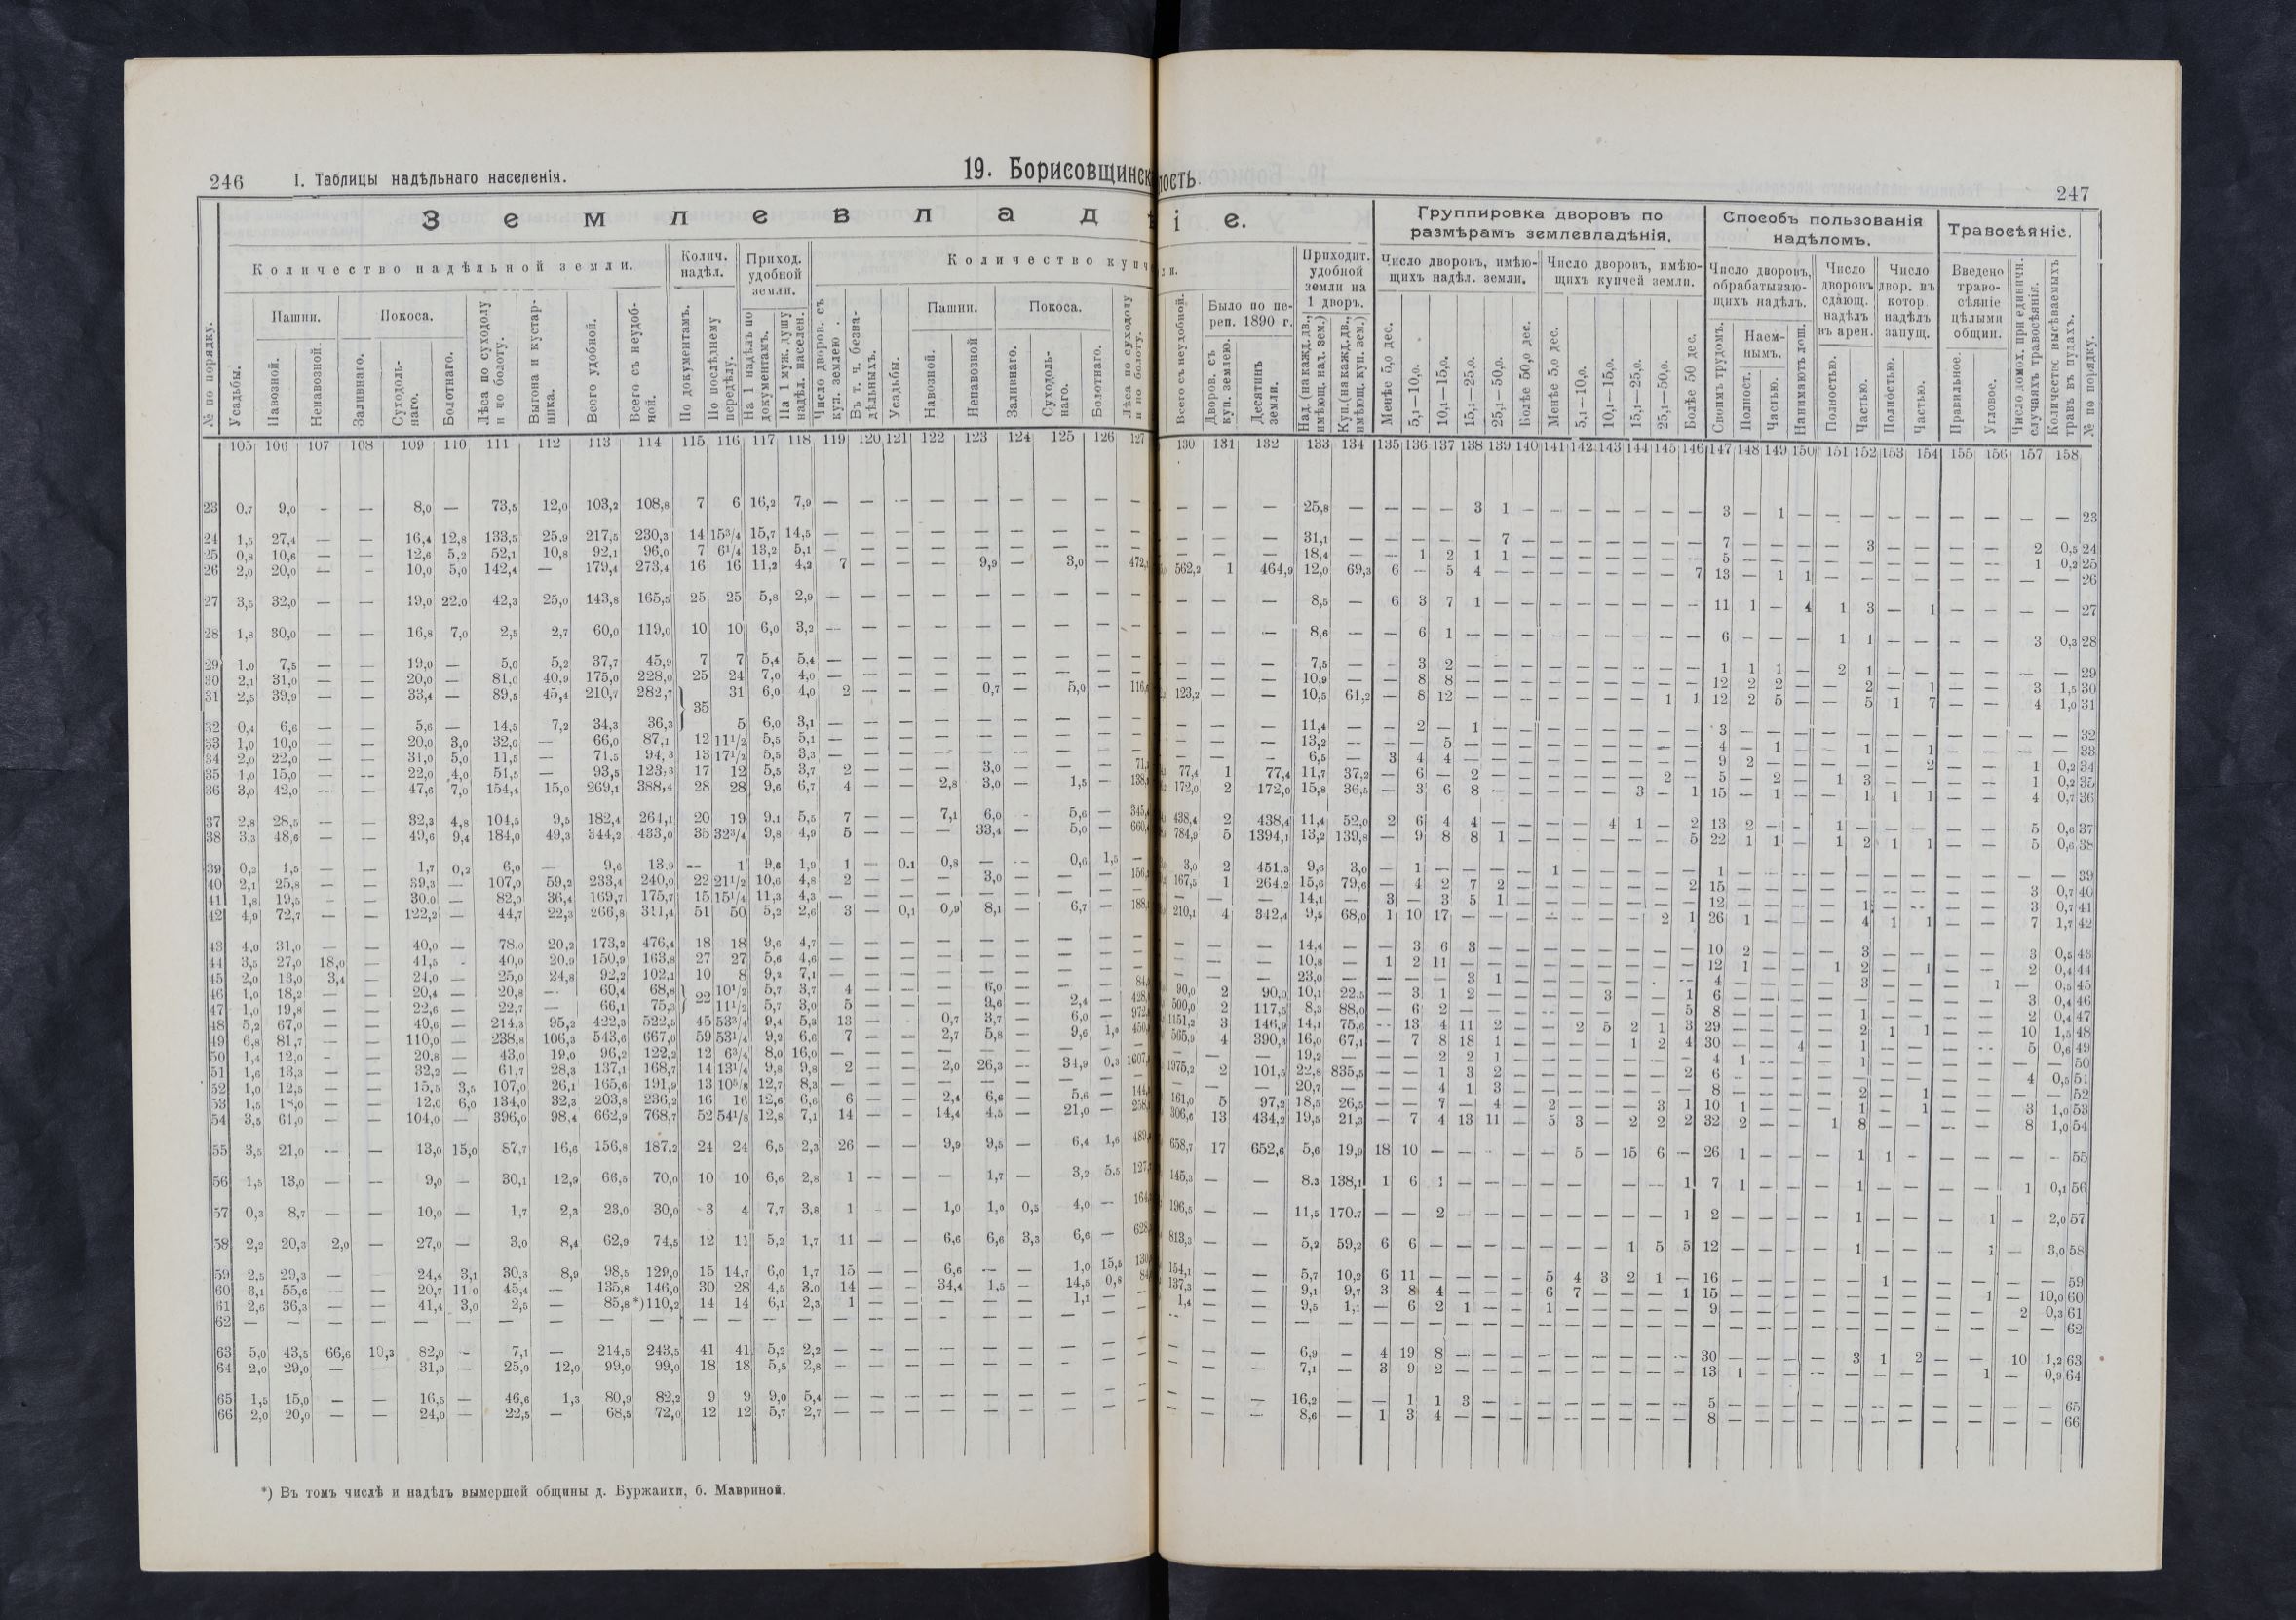 246 I. Таблицы надѣльнаго населенія. 19. Борисовщинск
З е м л е в л а д
Количество надѣльной земли. Колич. надѣл. Приход. удобной земли. Количество
№ по порядку. Усадьбы. Пашни. Навозной. Ненавозной. Покоса. Заливнаго. Суходольнаго. Болотнаго. Лѣса по суходолу и по болоту. Выгона и кустарника. Всего удобной. Всего съ неудобной. По документамъ. По послѣднему передѣлу. На 1 надѣлъ по документамъ. На 1 муж. душу надѣл. населен. Число дворовъ съ куп. землею. Въ т. ч. безнадѣльныхъ. Усадьбы. Пашни. Навозной. Ненавозной Покоса. Заливнаго. Суходольнаго. Болотнаго. Лѣса по суходолу и по болоту.
105 106 107 108 109 110 111 112 113 114 115 116 117 118 119 120 121 122 123 124 125 126 127
23 0,7 9,0 - — 8,0 — 73,5 12,0 103,2 108,8 7 6 16,2 7,9 — — — — — — — — —
24 1,5 27,4 — — 16,4 12,8 133,5 25,9 217,5 230,3 14 15³/₄ 15,7 14,5 — — — — — — — — —
25 0,8 10,6 — — 12,6 5,2 52,1 10,8 92,1 96,0 7 6¹/₄ 13,2 5,1 — — — — — — — — —
26 2,0 20,0 — - 10,0 5,0 142,4 — 179,4 273,4 16 16 11,2 4,2 7 — — — 9,9 — 3,0 —
27 3,5 32,0 — — 19,0 22,0 42,3 25,0 143,8 165,5 25 25 5,8 2,9 — — — — — — — — —
28 1,8 30,0 — — 16,8 7,0 2,5 2,7 60,0 119,0 10 10 6,0 3,2 — — — — — — — — —
29 1,0 7,5 — — 19,0 — 5,0 5,2 37,7 45,9 7 7 5,4 5,4 — — — — — — — — —
30 2,1 31,0 — — 20,0 — 81,0 40,9 175,0 228,0 25 24 7,0 4,0 — — — — — — — — —
31 2,5 39,9 — — 33,4 — 89,5 45,4 210,7 282,7 35 31 6,0 4,0 2 — — — 0,7 — 5,0 —
32 0,4 6,6 — — 5,6 — 14,5 7,2 34,3 36,3 5 6,0 3,1 — — — — — — — — —
33 1,0 10,0 — — 20,0 3,0 32,0 — 66,0 87,1 12 11¹/₂ 5,5 5,1 — — — — — — — — —
34 2,0 22,0 — — 31,0 5,0 11,5 — 71,5 94,3 13 17¹/₂ 5,5 3,3 — — — — — — — — —
35 1,0 15,0 — — 22,0 4,0 51,5 — 93,5 123,3 17 12 5,5 3,7 2 — — — 3,0 — — —
36 3,0 42,0 — — 47,6 7,0 154,4 15,0 269,1 388,4 28 28 9,6 6,7 4 — — 2,8 3,0 — 1,5 —
37 2,8 28,5 — — 32,3 4,8 104,5 9,5 182,4 264,1 20 19 9,1 5,5 7 — — 7,1 6,0 - 5,6 —
38 3,3 48,6 — — 49,6 9,4 184,0 49,3 344,2 433,0 35 32³/₄ 9,8 4,9 5 — — — 33,4 — 5,0 —
39 0,2 1,5 — — 1,7 0,2 6,0 — 9,6 13,9 — 1 9,6 1,9 1 — 0,1 0,8 — — 0,6 1,5 —
40 2,1 25,8 — — 39,3 — 107,0 59,2 233,4 240,0 22 21¹/₂ 10,6 4,8 2 — — — 3,0 — — —
41 1,8 19,5 — — 30,0 — 82,0 36,4 169,7 175,7 15 15¹/₄ 11,3 4,3 — — — — — — — — —
42 4,9 72,7 — — 122,2 — 44,7 22,3 266,8 311,4 51 50 5,2 2,6 3 — 0,1 0,9 8,1 — 6,7 —
43 4,0 31,0 — — 40,0 — 78,0 20,2 173,2 476,4 18 18 9,6 4,7 — — — — — — — — —
44 3,5 27,0 18,0 — 41,5 - 40,0 20,9 150,9 163,8 27 27 5,6 4,6 — — — — — — — — —
45 2,0 13,0 3,4 — 24,0 — 25,0 24,8 92,2 102,1 10 8 9,2 7,1 — — — — — — — — —
46 1,0 18,2 — — 20,4 — 20,8 — 60,4 68,8 22 10¹/₂ 5,7 3,7 4 — — — 6,0 — — —
47 1,0 19,8 — — 22,6 — 22,7 — 66,1 75,3 11¹/₂ 5,7 3,0 5 — — — 9,6 — 2,4 —
48 5,2 67,0 — — 40,6 — 214,3 95,2 422,3 522,5 45 53³/₄ 9,4 5,3 13 — — 0,7 3,7 — 6,0 —
49 6,8 81,7 — — 110,0 — 238,8 106,3 543,6 667,0 59 53¹/₄ 9,2 6,6 7 — — 2,7 5,8 — 9,6 1,8
50 1,4 12,0 - — 20,8 — 43,0 19,0 96,2 122,2 12 6³/₄ 8,0 16,0 — — — — — — — — —
51 1,6 13,3 — — 32,2 — 61,7 28,3 137,1 168,7 14 13¹/₄ 9,8 9,8 2 — — 2,0 26,3 — 34,9 0,3
52 1,0 12,5 — — 15,5 3,5 107,0 26,1 165,6 191,9 13 10⁵/₈ 12,7 8,3 — — — — — — — — —
53 1,5 — — 12,0 6,0 134,0 32,3 203,8 236,2 16 16 12,6 6,6 6 — — 2,4 6,6 — 5,6 —
54 3,5 61,0 — — 104,0 — 396,0 98,4 662,9 768,7 52 54¹/₈ 12,8 7,1 14 — — 14,4 4,5 — 21,0 —
55 3,5 21,0 — — 13,0 15,0 87,7 16,6 156,8 187,2 24 24 6,5 2,3 26 — — 9,9 9,5 — 6,4 1,6
56 1,5 13,0 — — 9,0 — 30,1 12,9 66,5 70,0 10 10 6,6 2,8 1 — — — 1,7 — 3,2 5,5
57 0,3 8,7 — — 10,0 — 1,7 2,3 23,0 30,0 3 4 7,7 3,8 1 — — 1,0 1,0 0,5 4,0 —
58 2,2 20,3 2,0 — 27,0 — 3,0 8,4 62,9 74,5 12 11 5,2 1,7 11 — — 6,6 6,6 3,3 6,6 —
59 2,5 29,3 — — 24,4 3,1 30,3 8,9 98,5 129,0 15 14,7 6,0 1,7 15 — — 6,6 — — 1,0 15,5
60 3,1 55,6 — — 20,7 11,0 45,4 — 135,8 146,0 30 28 4,5 3,0 14 — — 34,4 1,5 — 14,5 0,8
61 2,6 36,3 — — 41,4 3,0 2,5 — 85,8 *)110,2 14 14 6,1 2,3 1 — — — — — 1,1 — —
62 — — — — — — — — — — — — — — — — — — — — — — —
63 5,0 43,5 66,6 10,3 82,0 - 7,1 — 214,5 243,5 41 41 5,2 2,2 — — — — — — — — —
64 2,0 29,0 — — 31,0 — 25,0 12,0 99,0 99,0 18 18 5,5 2,8 — — — — — — — — —
65 1,5 15,0 — — 16,5 — 46,6 1,3 80,9 82,2 9 9 9,0 5,4 — — — — — — — — —
66 2,0 20,0 — — 24,0 — 22,5 — 68,5 72,0 12 12 5,7 2,7 — — — — — — — — —
*) Въ томъ числѣ и надѣлъ вымершей общины д. Буржаихи, б. Мавриной.
ость. 247
і е. Группировка дворовъ по размѣрамъ землевладѣнія. Способъ пользованія надѣломъ. Травосѣяніе.
Всего съ неудобной. Было по переп. 1890 г. Дворов. съ куп. землею. Десятинъ земли. Приходит. удобной земли на 1 дворъ. Над. (на кажд. дв., имѣющ. над. зем.) Куп. (на кажд. дв., имѣющ. куп. зем.) Число дворовъ, имѣющихъ надѣл. земли. Менѣе 5,0 дес. 5,1—10,0. 10,1—15,0. 15,1—25,0. 25,1—50,0. Болѣе 50,0 дес. Число дворовъ, имѣющихъ купчей земли. Менѣе 5,0 дес. 5,1—10,0. 10,1—15,0. 15,1—25,0. 25,1—50,0. Болѣе 50 дес.
Число дворовъ, обрабатывающихъ надѣлъ. Своимъ трудомъ. Наемнымъ. Полност. Частью. Нанимаютъ лош. Число дворовъ сдающ. надѣлъ въ арен. Полностью. Частью. Число двор. въ котор. надѣлъ запущ. Полностью. Частью. Введено травосѣяніе цѣлыми общин. Правильное. Угловое. Число домох. при единичн. случаяхъ травосѣянія. Количество высѣваемыхъ травъ въ пудахъ. № по порядку.
130 131 132 133 134 135 136 137 138 139 140 141 142 143 144 145 146 147 148 149 150 151 152 153 154 155 156 157 158
— — — 25,8 — — — — 3 1 — — — — — — — 3 — 1 — — — — — — — — — 23
— — — 31,1 — — — — — 7 — — — — — — — 7 — — — — 3 — — — — 2 0,5 24
— — — 18,4 — — 1 2 1 1 — — — — — — — 5 — — — — — — — — — 1 0,2 25
562,2 1 464,9 12,0 69,3 6 — 5 4 — — — — — — — 7 13 — 1 1 — — — — — — — — 26
— — — 8,5 — 6 3 7 1 — — — — — — — — 11 1 — 4 1 3 — 1 — — — — 27
— — — 8,6 — — 6 1 — — — — — — — — — 6 — — — 1 1 — — — — 3 0,3 28
— — — 7,5 — — 3 2 — — — — — — — — — 1 1 1 — 2 1 — — — — — — 29
— — — 10,9 — — 8 8 — — — — — — — — — 12 2 2 — — 2 — 1 — — 3 1,5 30
123,2 — — 10,5 61,2 — 8 12 — — — — — — — 1 1 12 2 5 — — 5 1 7 — — 4 1,0 31
— — — 11,4 — — 2 — 1 — — — — — — — — 3 — — — — — — — — — — — 32
— — — 13,2 — — — 5 — — — — — — — — — 4 — 1 — — 1 — 1 — — — — 33
— — — 6,5 — 3 4 4 — — — — — — — — — 9 2 — — — — — 2 — — 1 0,2 34
77,4 1 77,4 11,7 37,2 — 6 — 2 — — — — — — 2 — 5 — 2 — 1 3 — — — — 1 0,2 35
172,0 2 172,0 15,8 36,5 — 3 6 8 — — — — — 3 — 1 15 — 1 — — 1 1 1 — — 4 0,7 36
438,4 2 438,4 11,4 52,0 2 6 4 4 — — — — 4 1 — 2 13 2 — — 1 — — — — — 5 0,6 37
784,9 5 1394,1 13,2 139,8 — 9 8 8 1 — — — — — — 5 22 1 1 — 1 2 1 1 — — 5 0,6 38
3,0 2 451,3 9,6 3,0 — 1 — — — — 1 — — — — — 1 — — — — — — — — — — — 39
167,5 1 264,2 15,6 79,6 — 4 2 7 2 — — — — — — 2 15 — — — — — — — — — 3 0,7 40
— — — 14,1 — 3 — 3 5 1 — — — — — — — 12 — — — — 1 — — — — 3 0,7 41
210,1 4 342,4 9,5 68,0 1 10 17 — — — — — — — 2 1 26 1 — — — 4 1 1 — — 7 1,7 42
— — — 14,4 — — 3 6 3 — — — — — — — — 10 2 — — — 3 — — — — 3 0,5 43
— — — 10,8 — 1 2 11 — — — — — — — — — 12 1 — — 1 2 — 1 — — 2 0,4 44
— — — 23,0 — — — — 3 1 — — — — — — — 4 — — — — 3 — — — 1 — 0,5 45
90,0 2 90,0 10,1 22,5 — 3 1 2 — — — — 3 — — 1 6 — — — — — — — — — 3 0,4 46
500,0 2 117,5 8,3 88,0 — 6 2 — — — — — — — — 5 8 — — — — 1 — — — — 2 0,4 47
1151,2 3 146,9 14,1 75,6 — 13 4 11 2 — — 2 5 2 1 3 29 — — — — 2 1 1 — — 10 1,5 48
565,9 4 390,3 16,0 67,1 — 7 8 18 1 — — — — 1 2 4 30 — — 4 — 1 — — — — 5 0,6 49
— — — 19,2 — — — 2 2 1 — — — — — — — 4 1 — — — — — — — — — — 50
1975,2 2 101,5 22,8 835,5 — — 1 3 2 — — — — — — 2 6 — — — — — — — — — 4 0,5 51
— — — 20,7 — — — 4 1 3 — — — — — — — 8 — — — — 2 — 1 — — — — 52
161,0 5 97,2 18,5 26,5 — — 7 — 4 — 2 — — — 3 1 10 1 — — — 1 — 1 — — 3 1,0 53
306,6 13 434,2 19,5 21,3 — 7 4 13 11 — 5 3 — 2 2 2 32 2 — — 1 8 — — — — 8 1,0 54
658,7 17 652,6 5,6 19,9 18 10 — — — — — 5 — 15 6 — 26 1 — — — 1 1 — — — — - 55
145,3 — — 8,3 138,1 1 6 1 — — — — — — — — 1 7 1 — — — 1 — — — — 1 0,1 56
196,5 — — 11,5 170,7 — — 2 — — — — — — — — 1 2 — — — — 1 — — — 1 — 2,0 57
813,3 — — 5,2 59,2 6 6 — — — — — — — 1 5 5 12 — — — — 1 — — — 1 — 3,0 58
154,1 — — 5,7 10,2 6 11 — — — — 5 4 3 2 1 — 16 — — — — — 1 — — — — — 59
137,3 — — 9,1 9,7 3 8 4 — — — 6 7 — — — 1 15 — — — — — — — — 1 — 10,0 60
1,4 — — 9,5 1,1 — 6 2 1 — — 1 — — — — — 9 — — — — — — — — — 2 0,3 61
— — — — — — — — — — — — — — — — — — — — — — — — — — — — — 62
— — — 6,9 — 4 19 8 — — — — — — — — — 30 — — — — 3 1 2 — — 10 1,2 63
— — — 7,1 — 3 9 2 — — — — — — — — — 13 1 — — — — — — — 1 — 0,9 64
— — — 16,2 — — 1 1 3 — — — — — — — — 5 — — — — — — — — — — — 65
— — — 8,6 — 1 3 4 — — — — — — — — — 8 — — — — — — — — — — — 66